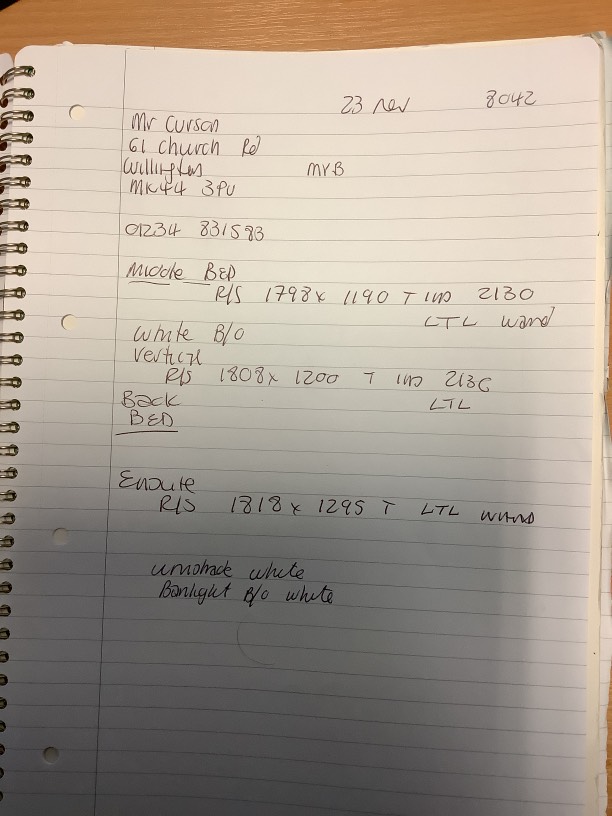 23 nov 8042
Mr Curson
61 Church Rd
Willington MrB
MK44 3PU
01234 831583
Middle BED
R/S 1798 x 1190 T 2130
LTL wand
White B/O
Vertical
R/S 1808 x 1200 T
Back LTL
BED
Ensuite
R/S 1818 x 1295 T LTL wand
white
Banlight B/O white